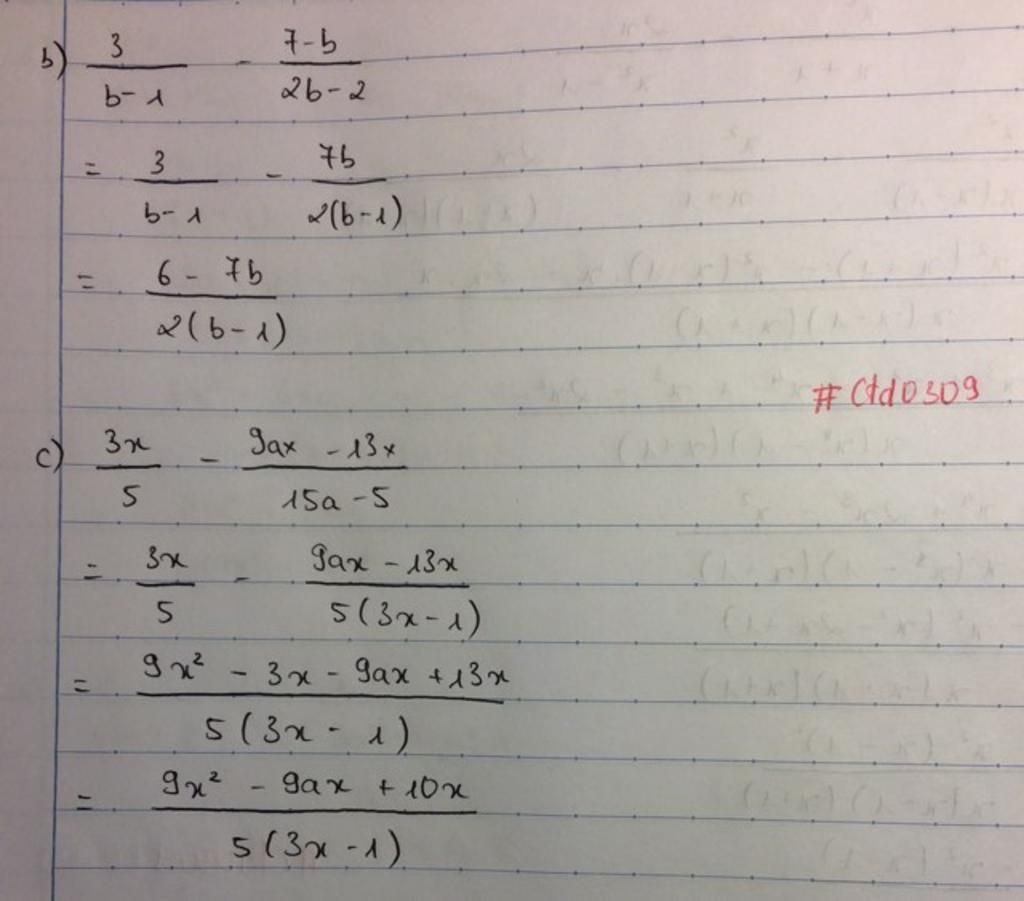 b) 3/(b-1) - (7-b)/(2b-2)
= 3/(b-1) - 7b/(2(b-1))
= (6 - 7b)/(2(b-1))
#Ctd0309
c) 3x/5 - (9ax - 13x)/(15a - 5)
= 3x/5 - (9ax - 13x)/(5(3x-1))
= (9x² - 3x - 9ax + 13x)/(5(3x - 1))
= (9x² - 9ax + 10x)/(5(3x-1))